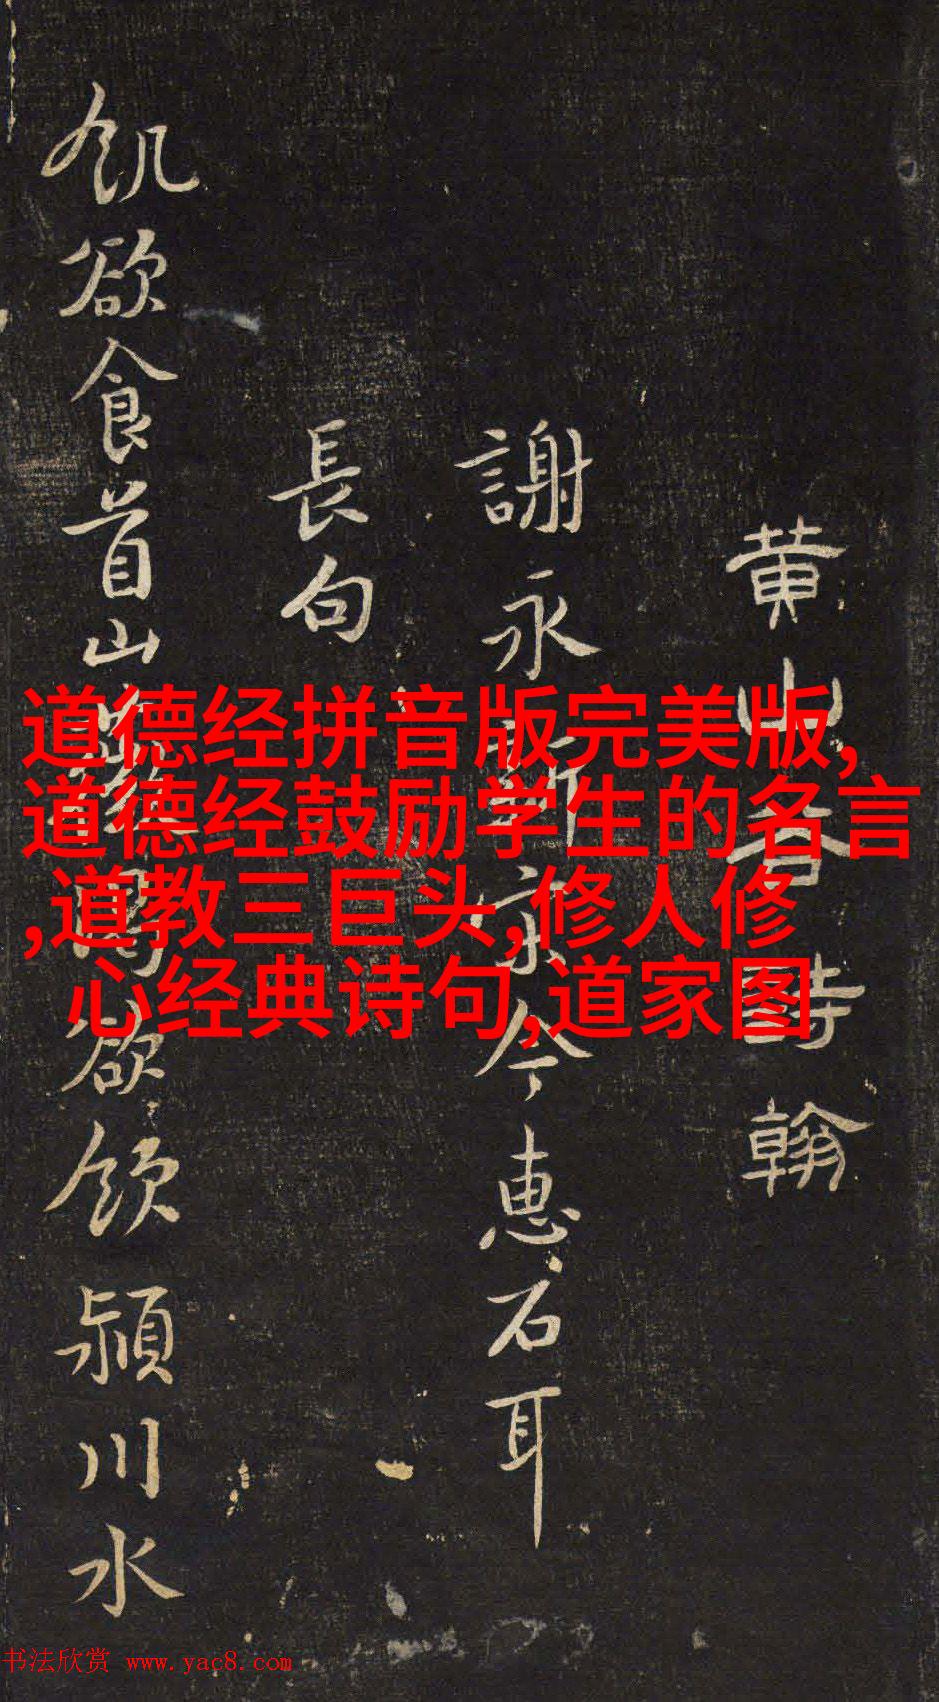 黄山谷詩翰
謝永新宗令惠石耳
長句
飢欲食首山薇渴欲飲潁川水
道德经拼音版完美版,
道德经鼓励学生的名言
,道教三巨头,修人修
心经典诗句,道家图
书法欣赏 www.yac8.com